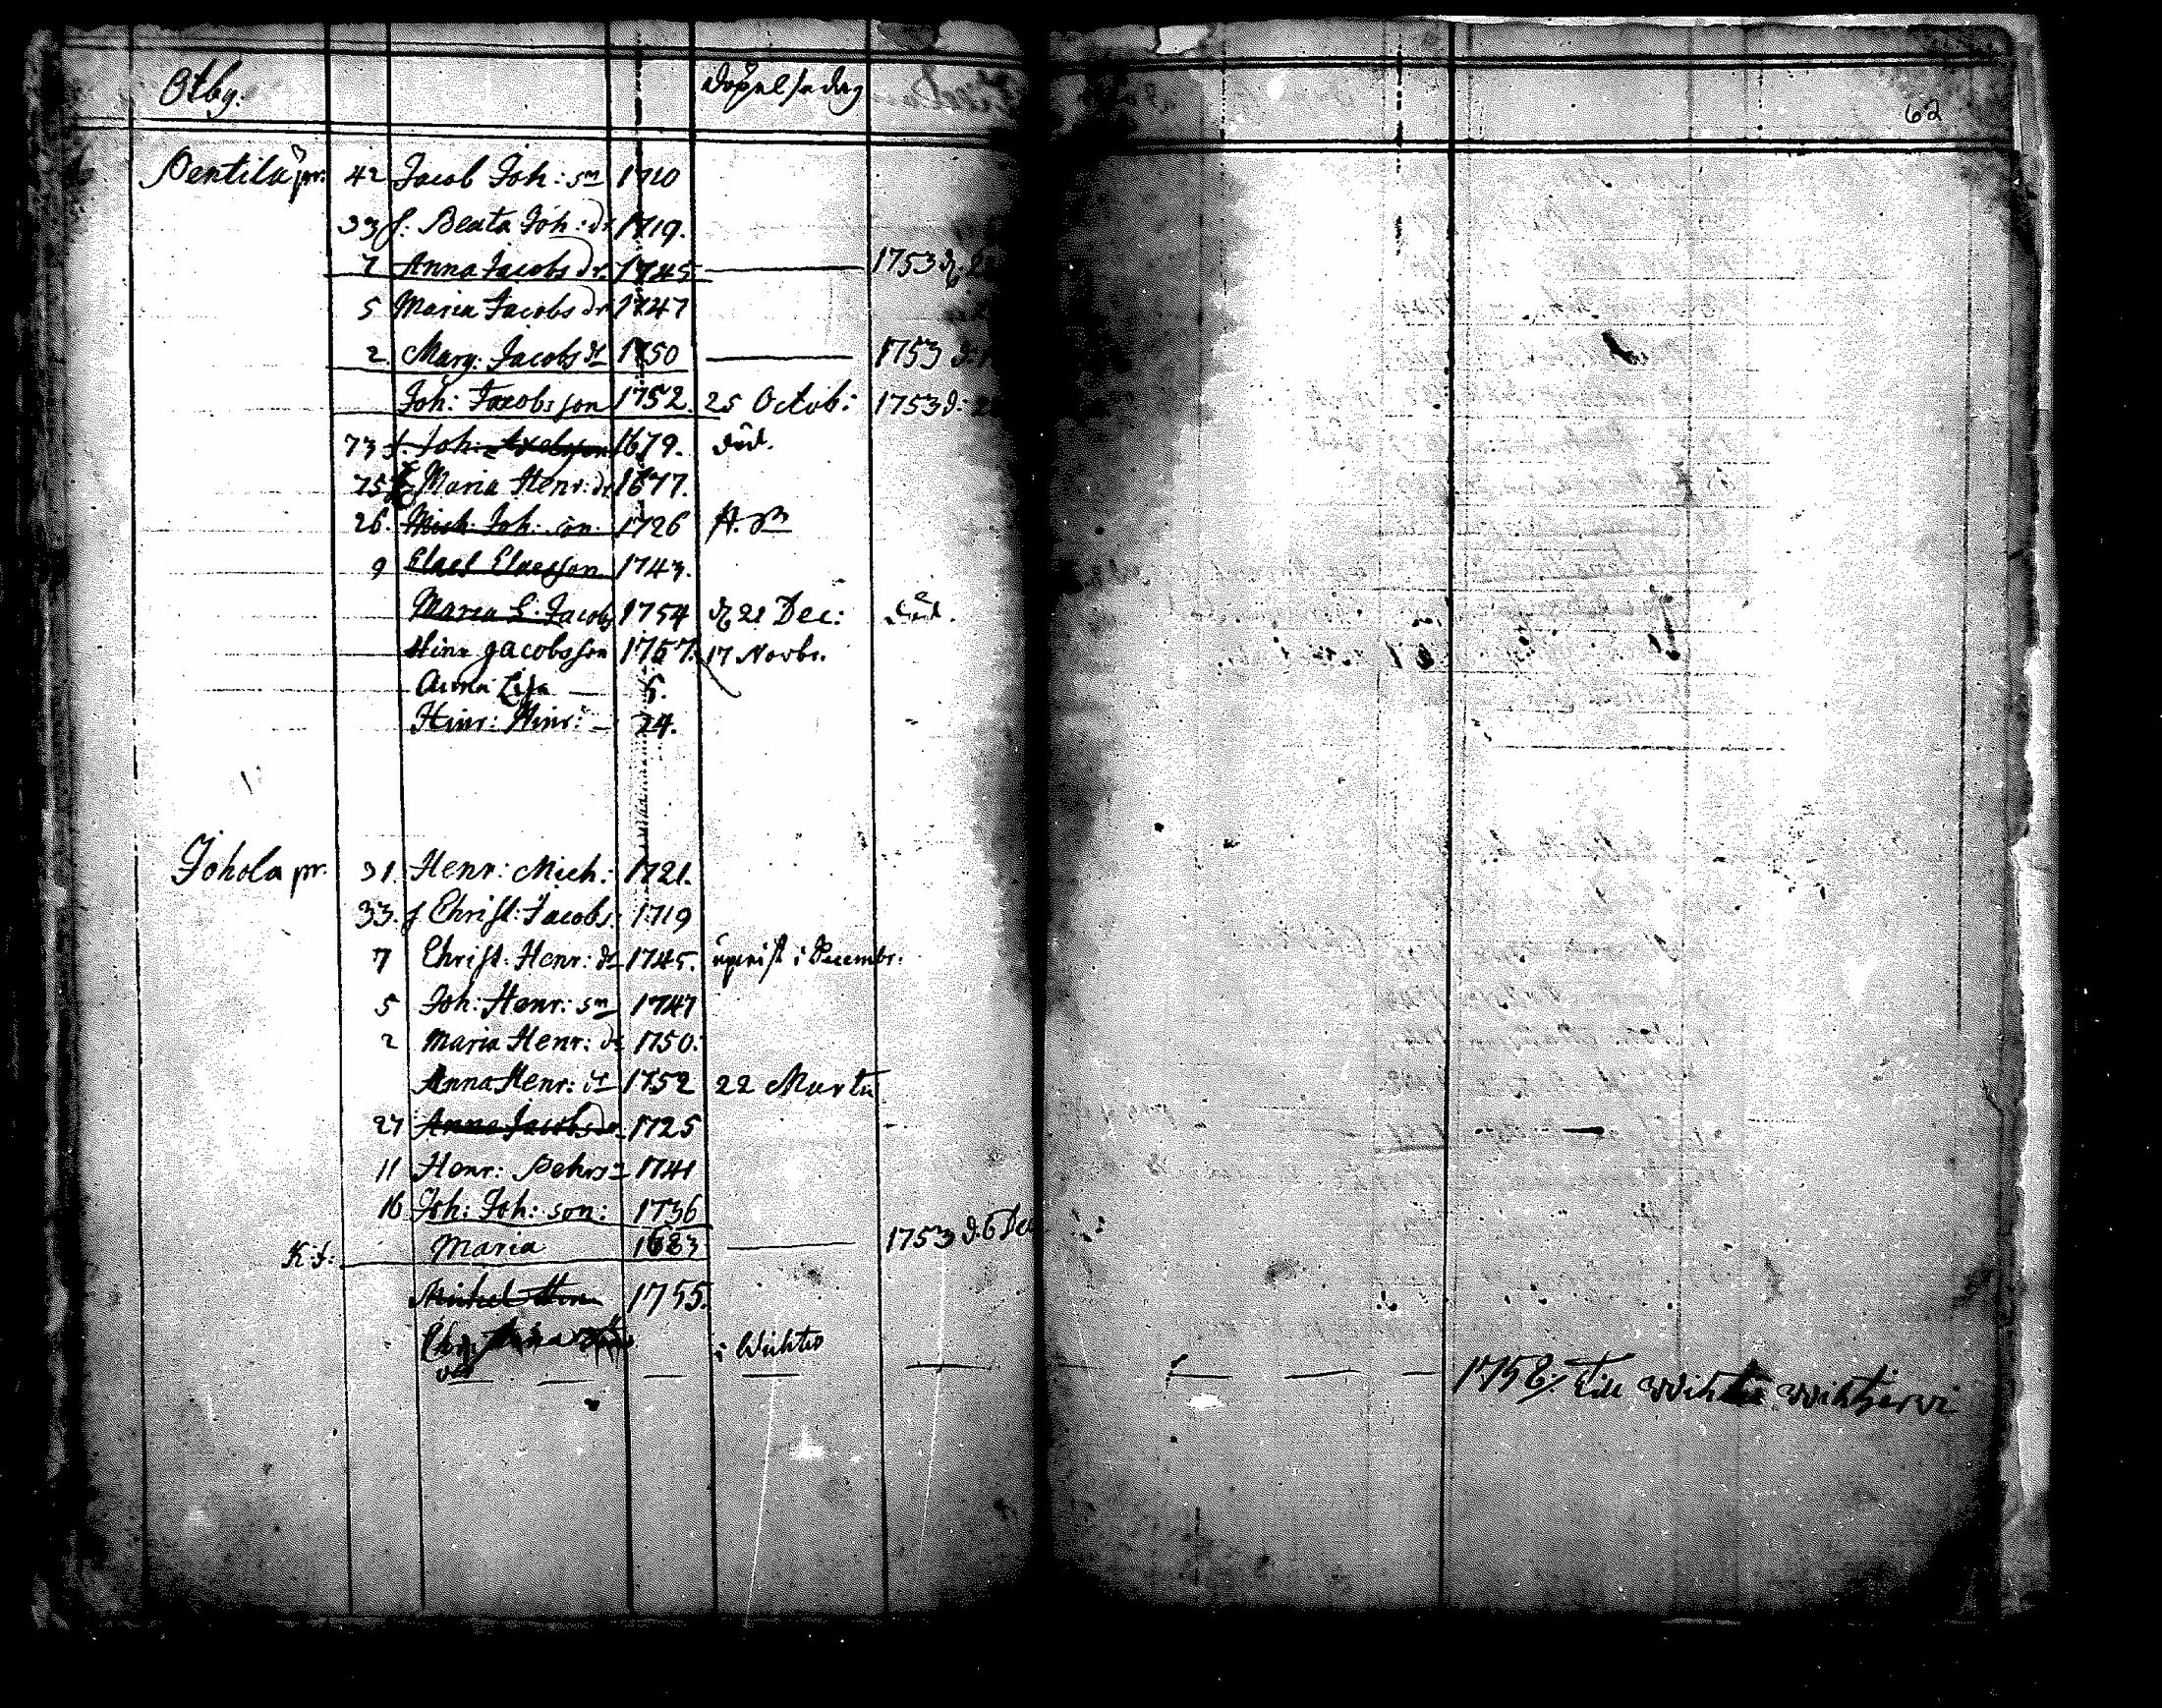 Otby. Döpelsedag
62
Pentilä pr. 42 Jacob Joh: sn 1710
33 f. Beata Joh: dr 1719.
7 Anna Jacobs dr. 1745 1753 d. 2
5 Maria Jacobs dr 1747
2. Marg: Jacobs dr 1750 1753 d:
Joh: Jacobsson 1752. 25 Octob: 1753 d: 2
73 f. Joh: Axelsson 1679. död.
75 Maria Henr: dr 1677.
26. Mich: Joh: son. 1726
9 Claes Claesson 1743.
Maria L. Jacobs 1754 d 21 Dec: död.
Hinr Jacobsson 1757. 17 Novbr.
Anna Lisa — 5.
Hinr: Hinr: — 24.
Johola pr. 31. Henr: Mich: 1721.
33. f Christ: Jacobs: 1719
7 Christ: Henr: dr 1745. i Decembr.
5 Joh: Henr: sn 1747
2 Maria Henr: dr 1750.
Anna Henr: dr 1752 22 Martii
27 Anna Jacobs dr 1725
11 Henr: Pehrs 1741
16 Joh: Joh: son: 1736
K:f. Maria 1683 1753 d. 6 Dec
Michel Hin 1755.
i Wichtis
1758 Till Wihtis Wihtjervi